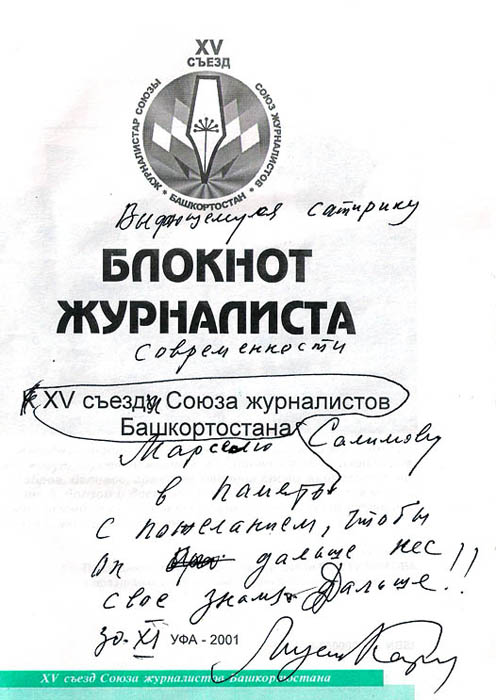 XV
СЪЕЗД
ЖУРНАЛИСТАР СОЮЗЫ • БАШКОРТОСТАН • СОЮЗ ЖУРНАЛИСТОВ
Выдающемуся сатирику
БЛОКНОТ
ЖУРНАЛИСТА
современности
к XV съезду Союза журналистов
Башкортостана
Марселю Салимову
в память
с пожеланием, чтобы
он дальше нес
свое знамя. Дальше!!
30-XI УФА - 2001
XV съезд Союза журналистов Башкортостана